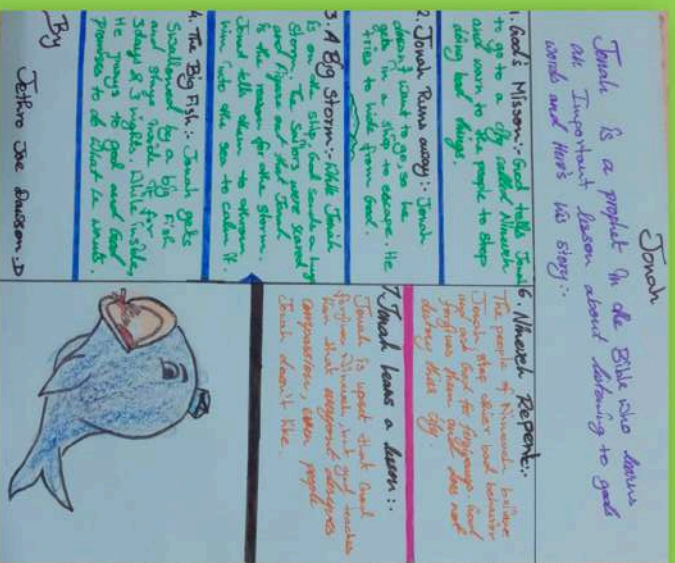 Jonah
Jonah is a prophet in the Bible who learns
an Important lesson about listening to gods
words and Here's his story:-
1. God's Misson:- God tells Jonah
to go to a city called Nineveh
and warn to the people to stop
doing bad things.
2. Jonah Runs away:- Jonah
doesn't want to go, so he
gets in a ship to escape. He
tries to hide from God.
3. A Big storm:- While Jonah
is on the ship, God sends a huge
storm. The Sailors were scared
and figure out that Jonah
is the reason for the storm.
Jonah tells them to throw
him into the sea to calm it.
4. The Big Fish:- Jonah gets
Swallowed by a big fish
and stays inside of for
3 days & 3 nights. While inside,
He prays to god and God
promises to do what he wants.
By
Jethro Joe Dawson.D
6. Nineveh Repent:-
The people of Nineveh believe
Jonah stop their bad behavior
and ask God for forgiveness. God
forgives them and does not
destroy their city
7. Jonah learns a lesson:-
Jonah is upset that God
forgives Nineveh, but god teaches
him that everyone deserves
compassion, even people
Jonah doesn't like.